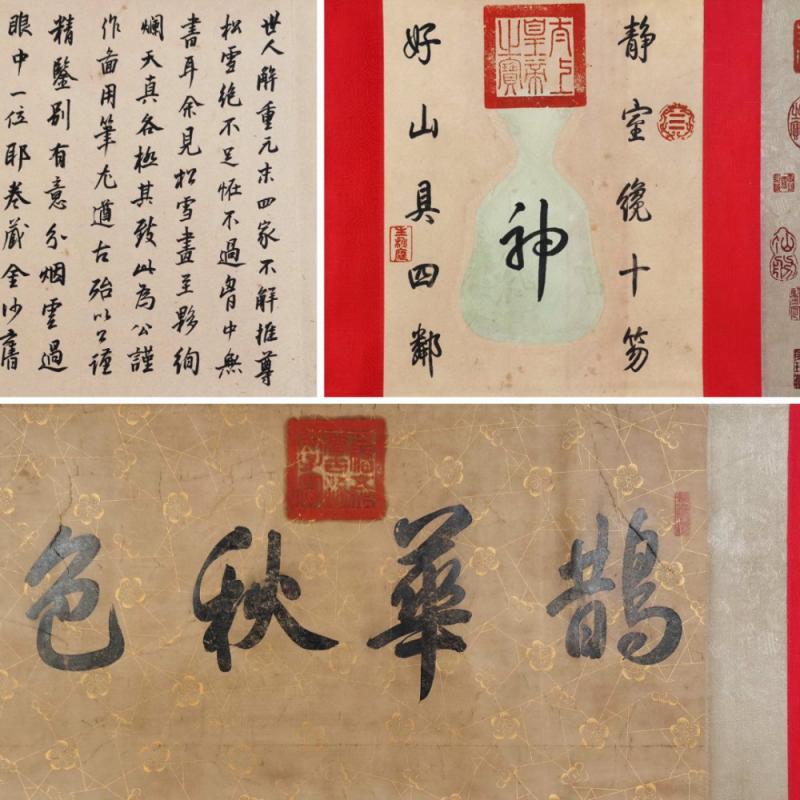 世人解重元末四家不解推尊
松雪絶不足恠不過胷中無
書耳余見松雪畫至夥絢
爛天真各極其致此為公謹
作畵用筆尤遒古殆以公謹
精鑒别有意分烟雲過
眼中一位耶卷藏金沙
静室纔十笏
太上
皇帝
之寶
神
好山具四鄰
鵲華秋色